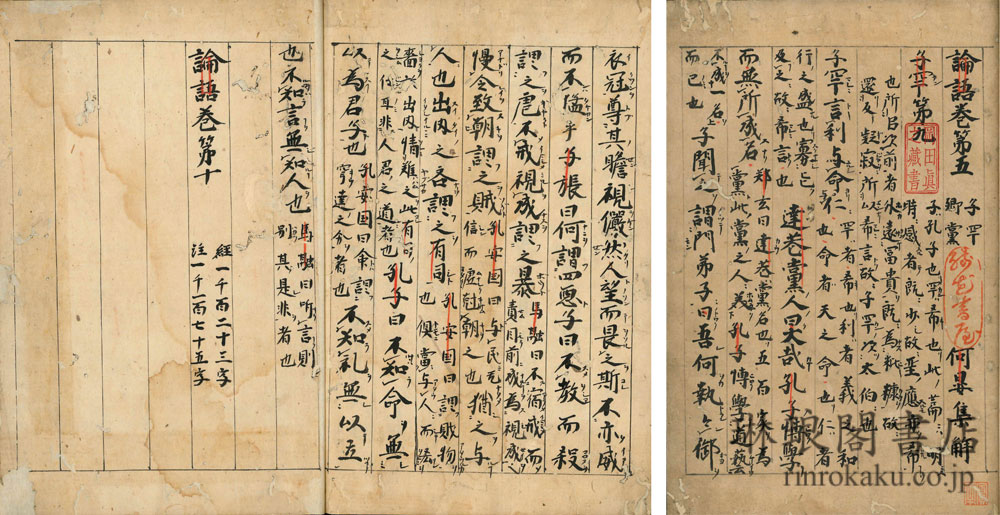 論語卷第五
子罕
鄉黨
何晏集解
子罕第九
子孔子也罕希也此篇明
時感者既少故聖應亦希
也所以次前者外遠冨貴既為粃糠故
還反凝寂所以希言故子罕次太伯也
子罕言利与命与仁
罕者希也利者義之和
也命者天之命也仁者
行之盛也寡能
及之故希言也
達巷黨人曰大哉孔子博學
而無所成名
鄭玄曰達巷黨名也五百家為
黨此黨之人美孔子博學道藝
不成一名
而已也
子聞之謂門弟子曰吾何執々御
衣冠尊其瞻視儼然人望而畏之斯不亦威
而不猛乎子張曰何謂四惡子曰不教而殺
謂之虐不戒視成謂之暴
馬融曰不宿戒而
責目前成為視成
慢令致期謂之賊
孔安国曰与民无
信而虚尅期之也
猶之与
人也出内之吝謂之有司
孔安国曰謂財物
也俱當与人而吝
嗇於出内惜難之此有司
之任耳非人君之道者也
孔子曰不知命無
以為君子也
孔安国曰命謂
窮達之分者也
不知礼無以立
也不知言無知人也
馬融曰听言則
別其是非者也
論語卷第十
經一千百二十三字
注一千一百七十五字
琳琅閣書店
rinrokaku.co.jp